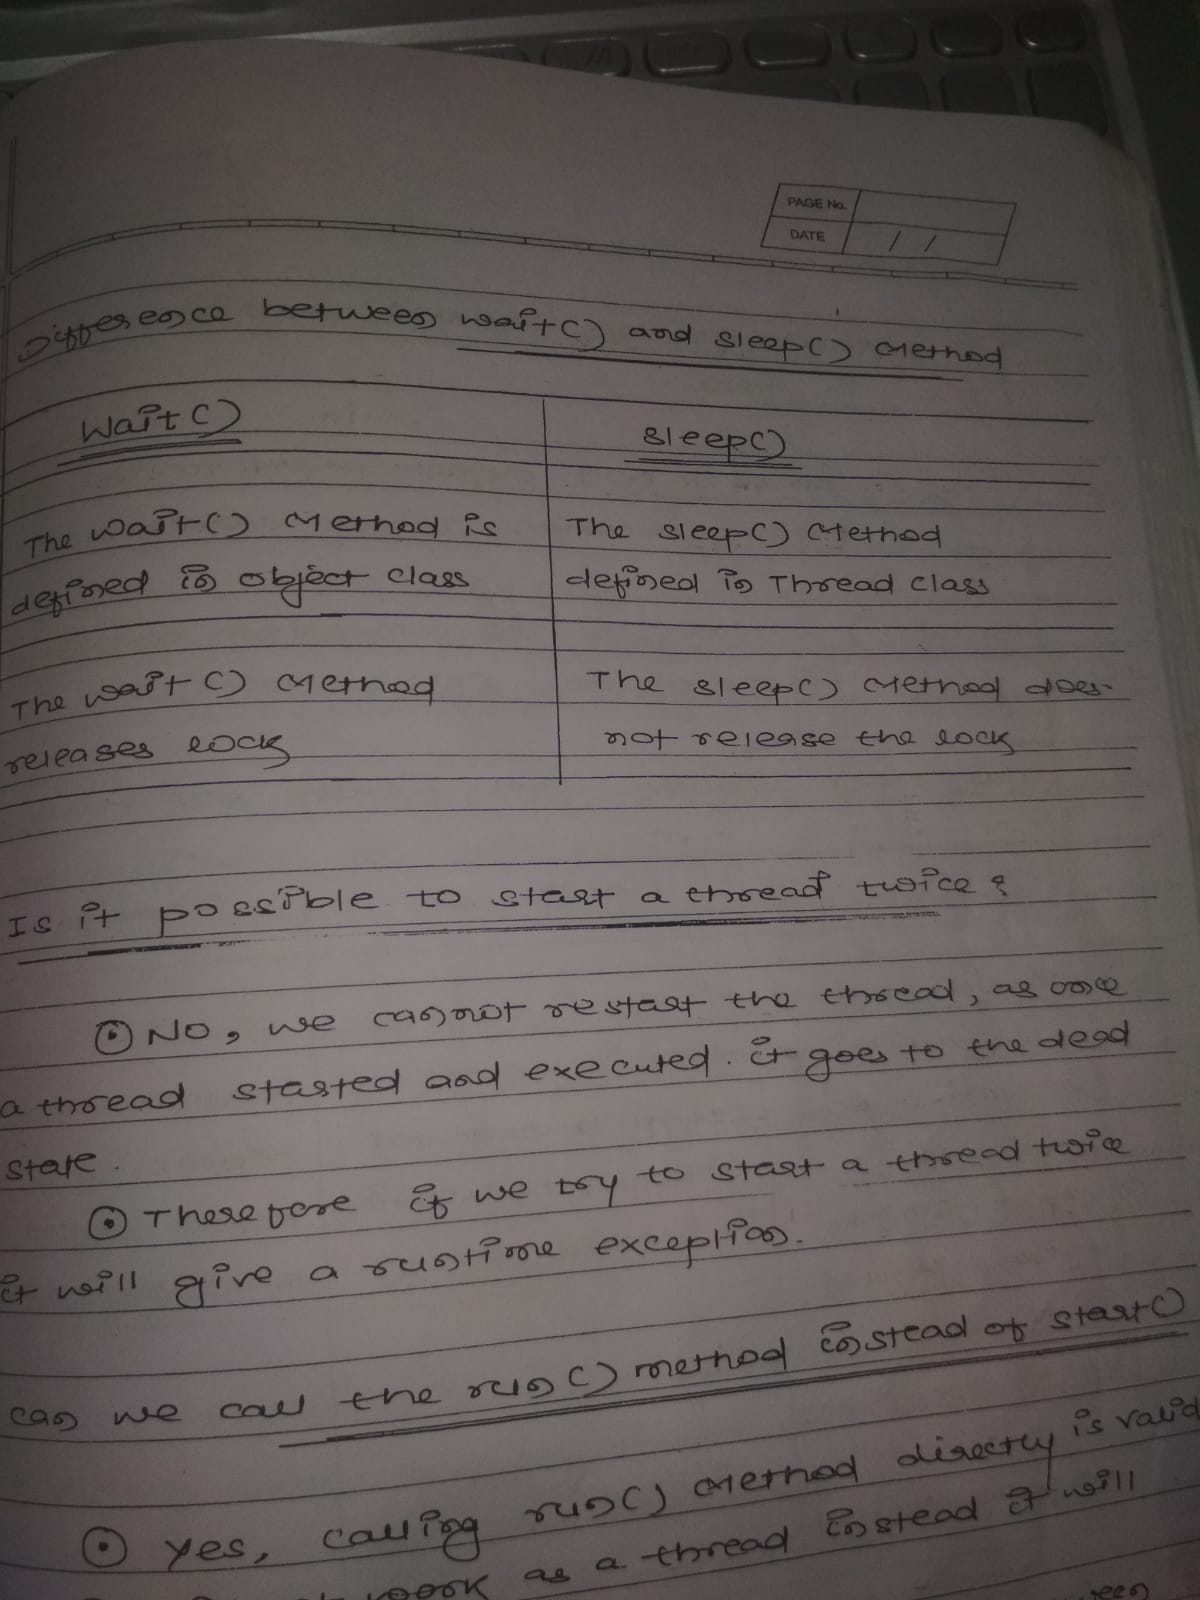 PAGE No.
DATE / /
Difference between wait() and sleep() Method
wait() sleep()
The wait() Method is The sleep() Method
defined in object class defined in Thread class
The wait() Method The sleep() Method does-
releases lock not release the lock
Is it possible to start a thread twice?
No, we cannot restart the thread, as once
a thread started and executed. it goes to the dead
state.
Therefore if we try to start a thread twice
it will give a runtime exception.
can we call the run() method instead of start()
Yes, calling run() Method directly is valid
work as a thread instead it will